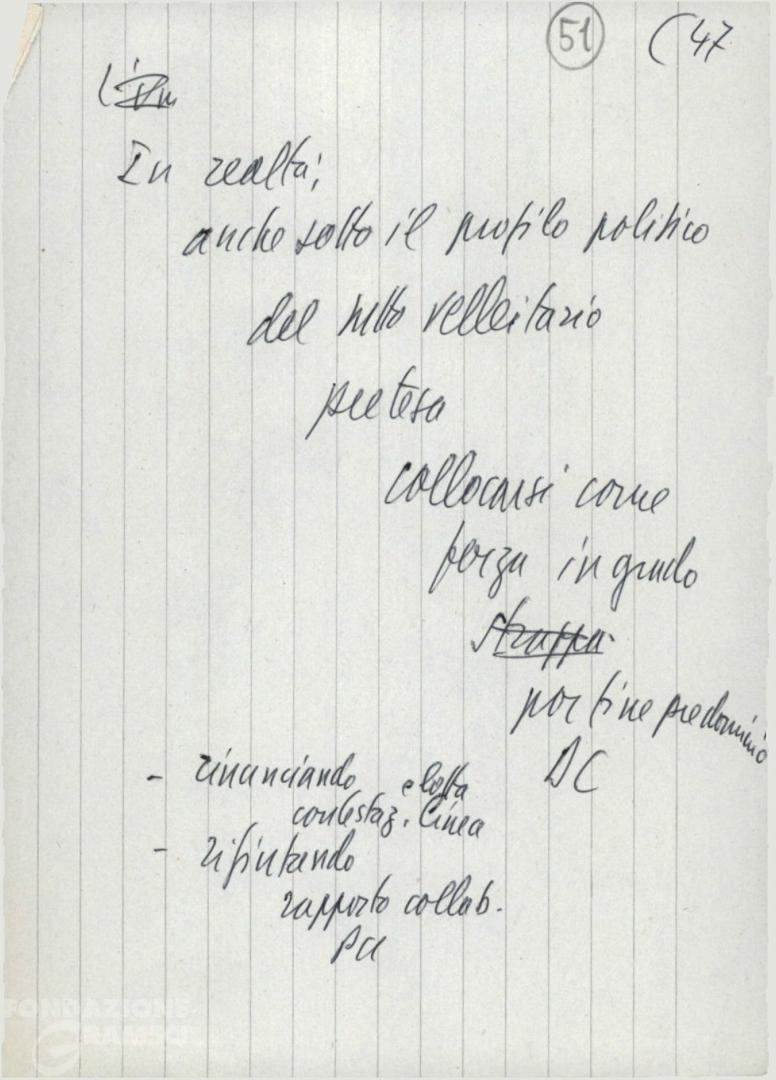 51 (47
In realtà;
anche sotto il profilo politico
del tutto velleitario
pretesa
collocarsi come
forza in grado
strappa
por fine predominio
DC
- rinunciando e lotta
contestaz. linea
- rifiutando
rapporto collab.
PCI
FONDAZIONE
GRAMSCI